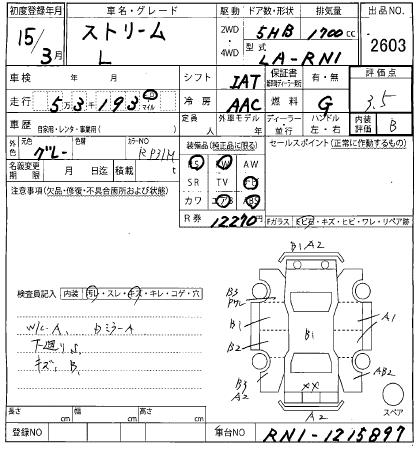 初度登録年月 車名・グレード 駆動 ドア数・形状 排気量 出品NO
15/3月 ストリーム L 2WD・4WD 5HB 1700cc 2603
型式 LA-RN1
車検 年 月 シフト IAT 保証書 有・無 評価点
走行 5万3千193 km マイル 冷房 AAC 燃料 G 3.5
車歴 自家用・レンタ・事業用( ) 定員 人 外車モデル 年 ディーラー・並行 ハンドル 左・右 内装評価 B
外色 元色 グレー 色替 カラーNO RP31M
装備品(純正品に限る) セールスポイント(正常に作動するもの)
名義変更期限 月 日迄 積載 kg
PS PW AW
SR TV
カワ エアB ABS
注意事項(欠品・修復・不具合箇所および状態)
R券 12270円
Fガラス ヒビ・キズ・ヒビ・ワレ・リペア跡
B1 A2
B3 Pワレ
B1 B1 A1
B2
B3 A2 AB2
××
A2
スペア
検査員記入 内装 汚レ・スレ・キズ・キレ・コゲ・穴
W/C A、 DミラーA
下廻りS、
キズ、B、
長さ cm 幅 cm 高さ cm
登録NO 車台NO RN1-1215897